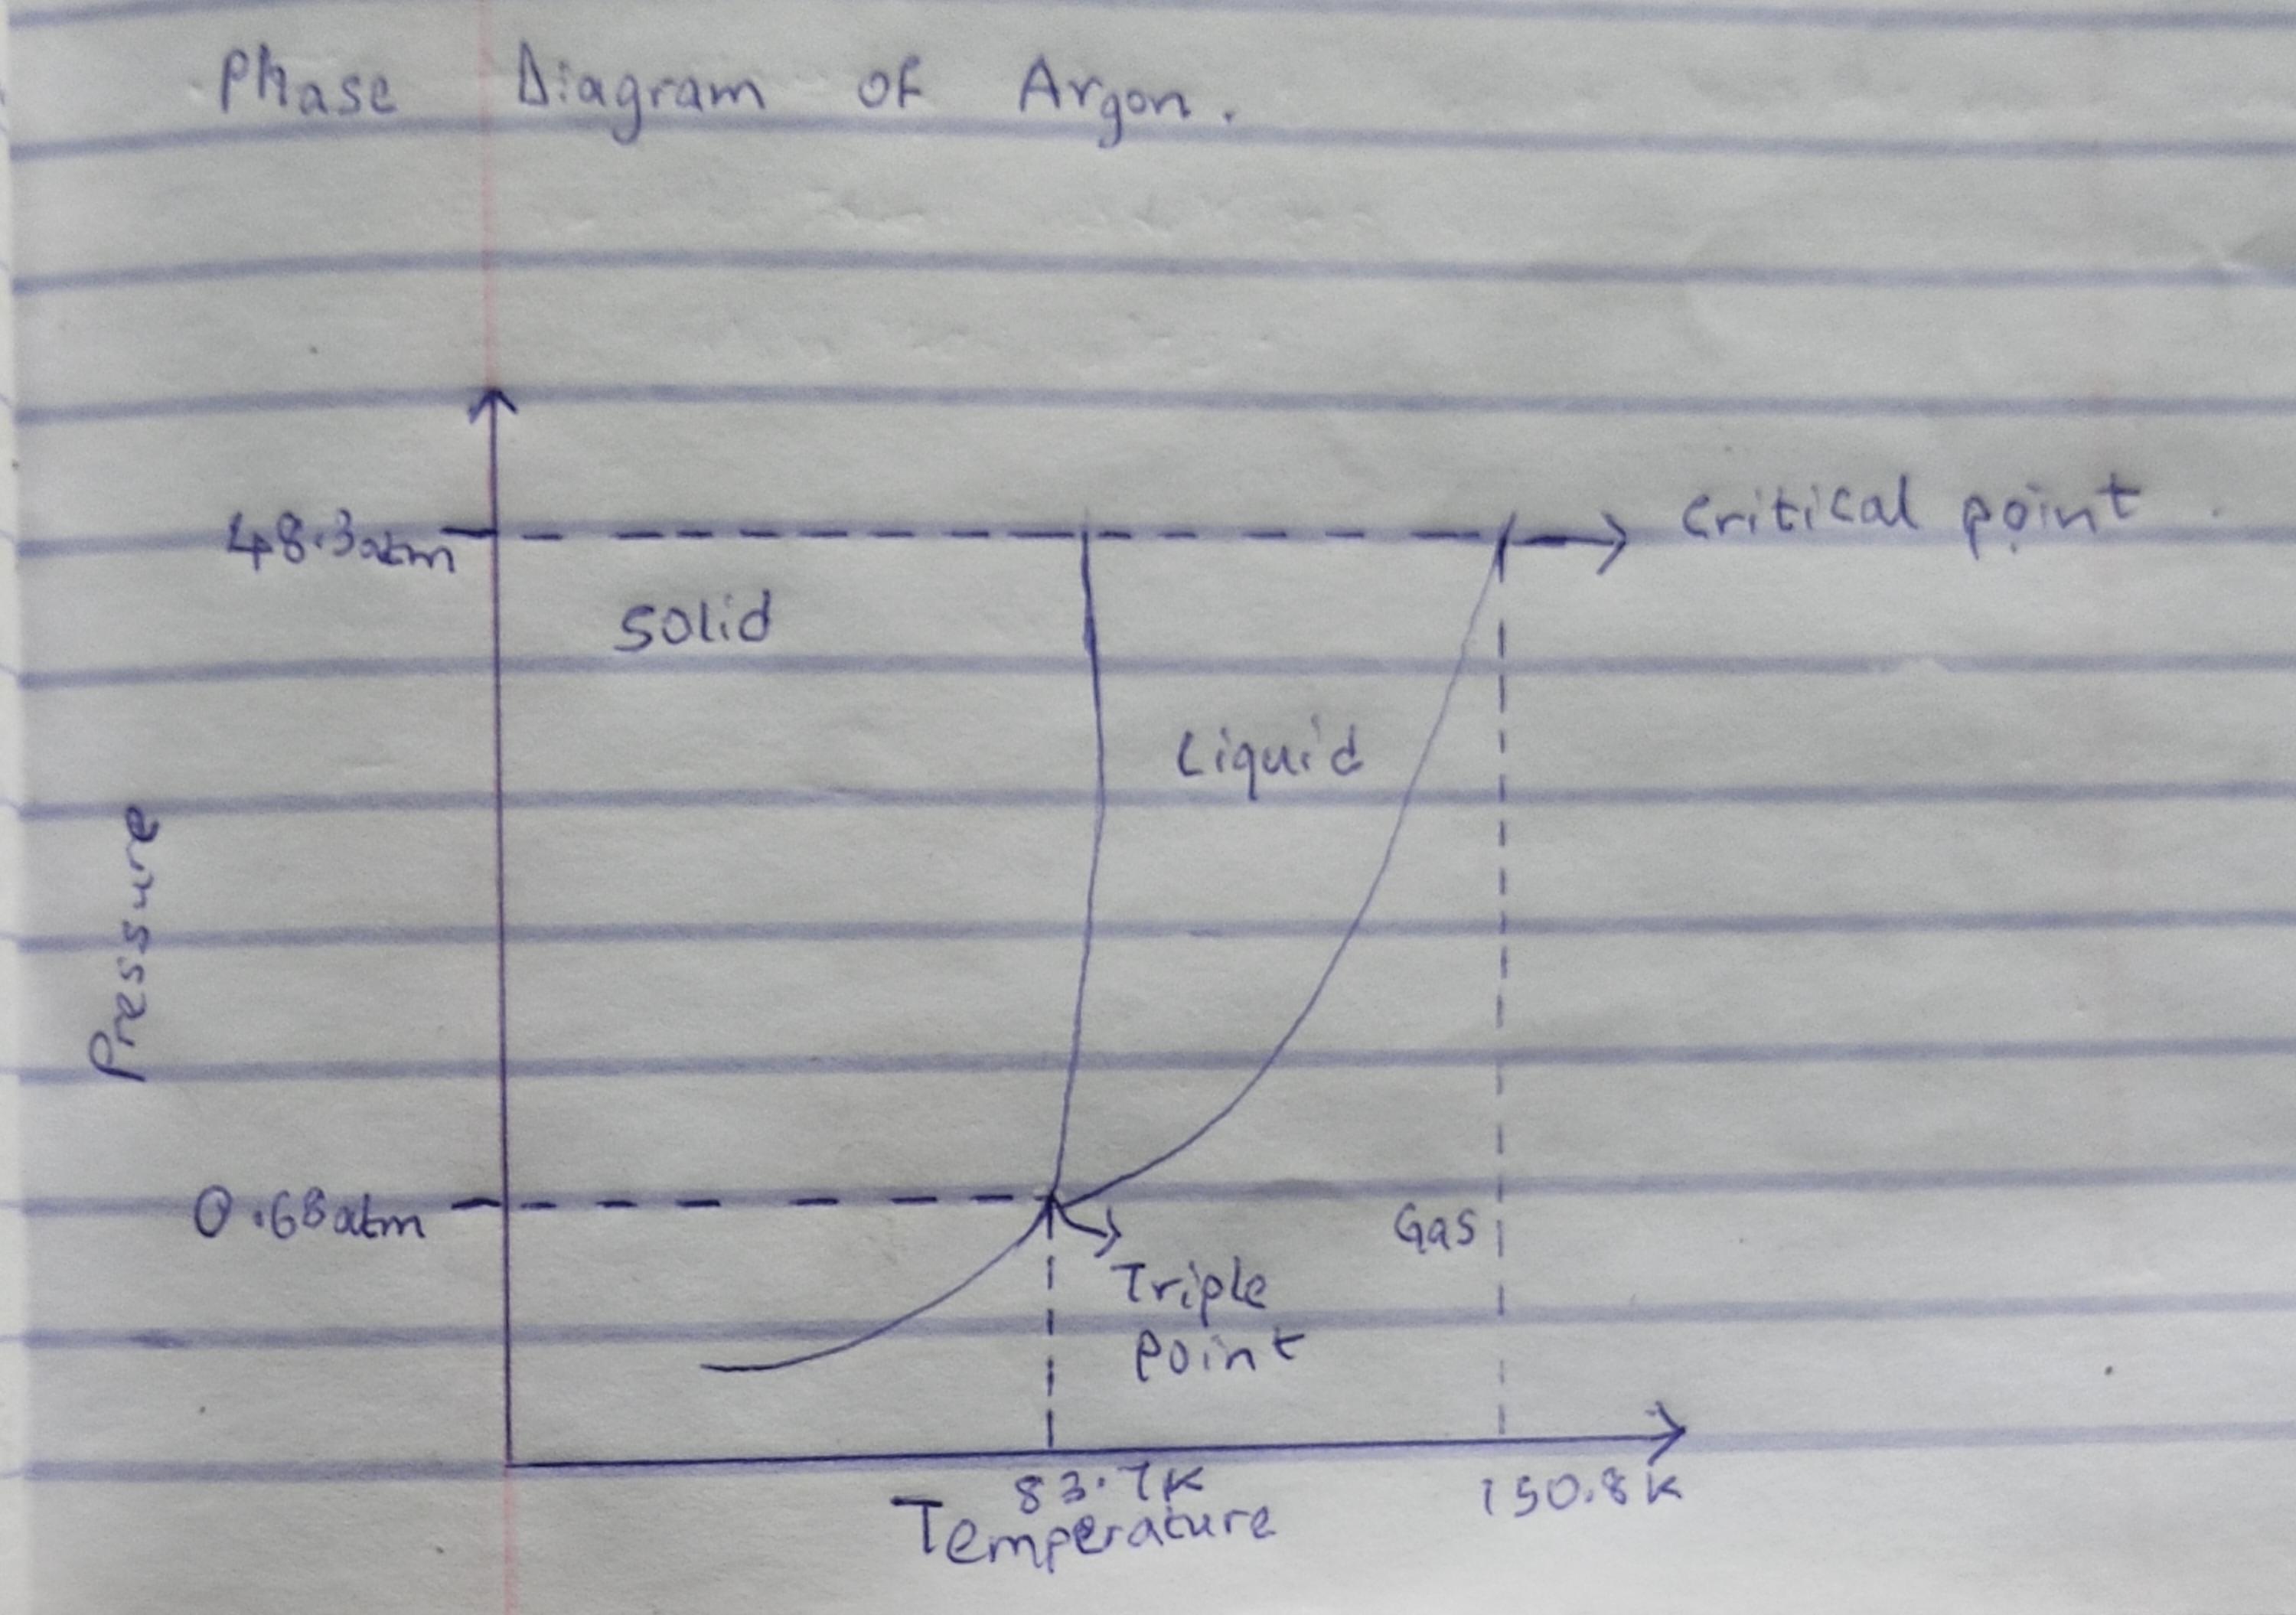 Phase Diagram of Argon.
48.3atm
critical point.
Solid
Liquid
Pressure
0.68atm
Gas
Triple
point
83.7K
150.8K
Temperature